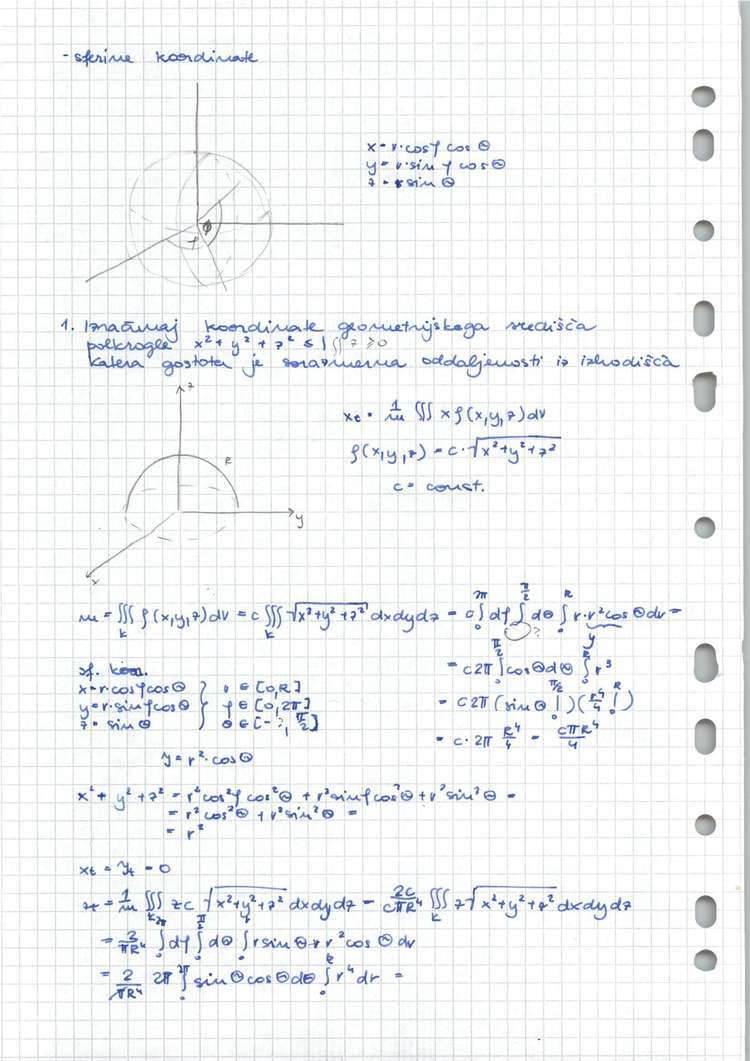 - sferine koordinate
x = r·cosφ cosΘ
y = r·sinφ cosΘ
z = r sinΘ
φ
Θ
1. Izračunaj koordinate geometrijskega središča
polkrogle x² + y² + z² ≤ 1 z ≥ 0
katera gostota je sorazmerna oddaljenosti iz izhodišča
z
R
y
x
x_t = 1/m ∭ x ρ(x,y,z) dv
ρ(x,y,z) = c·√(x²+y²+z²)
c = const.
m = ∭_K ρ(x,y,z) dv = c ∭_K √(x²+y²+z²) dxdydz = c ∫_0^{2π} dφ ∫_?^{π/2} dΘ ∫_0^R r·r² cosΘ dr =
= c2π ∫_0^{π/2} cosΘ dΘ ∫_0^R r³
= c2π (sinΘ |_0^{π/2}) (r⁴/4 |_0^R)
= c·2π R⁴/4 = cπR⁴/4
sf. koo.
x = r·cosφcosΘ } r ∈ [0,R]
y = r·sinφcosΘ } φ ∈ [0,2π]
z = sinΘ } Θ ∈ [-?, π/2]
y = r²·cosΘ
x² + y² + z² = r²cos²φ cos²Θ + r²sinφcos²Θ + r²sin²Θ =
= r²cos²Θ + r²sin²Θ =
= r²
x_t = y_t = 0
z_t = 1/m ∭_K zc √(x²+y²+z²) dxdydz = 2c/cπR⁴ ∭_K z√(x²+y²+z²) dxdydz
= 2/πR⁴ ∫_0^{2π} dφ ∫_0^{π/2} dΘ ∫_0^R r sinΘ r r² cosΘ dr
= 2/πR⁴ 2π ∫_0^{2π} sinΘcosΘdΘ ∫_0^R r⁴ dr =